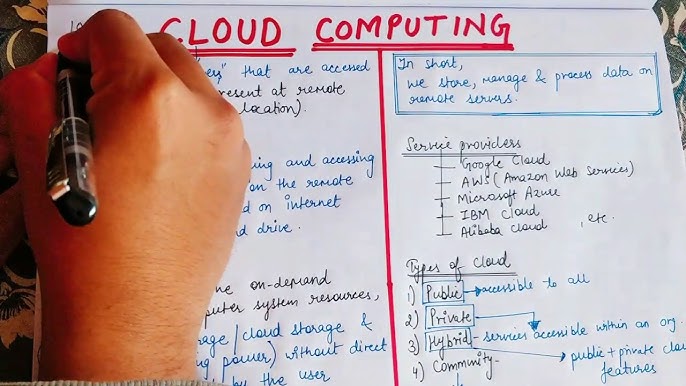 CLOUD COMPUTING
that are accessed
present at remote
location).
ing and accessing
on the remote
d on internet
nd drive.
on-demand
puter system resources,
age / cloud storage &
ng power) without direct
by the user
In short,
we store, manage & process data on
remote servers.
Service providers
Google Cloud
AWS (Amazon Web Services)
Microsoft Azure
IBM Cloud
Alibaba cloud , etc.
Types of cloud
1) Public → accessible to all
2) Private
3) Hybrid - services accessible within an org.
public + private clou
features
4) Community-